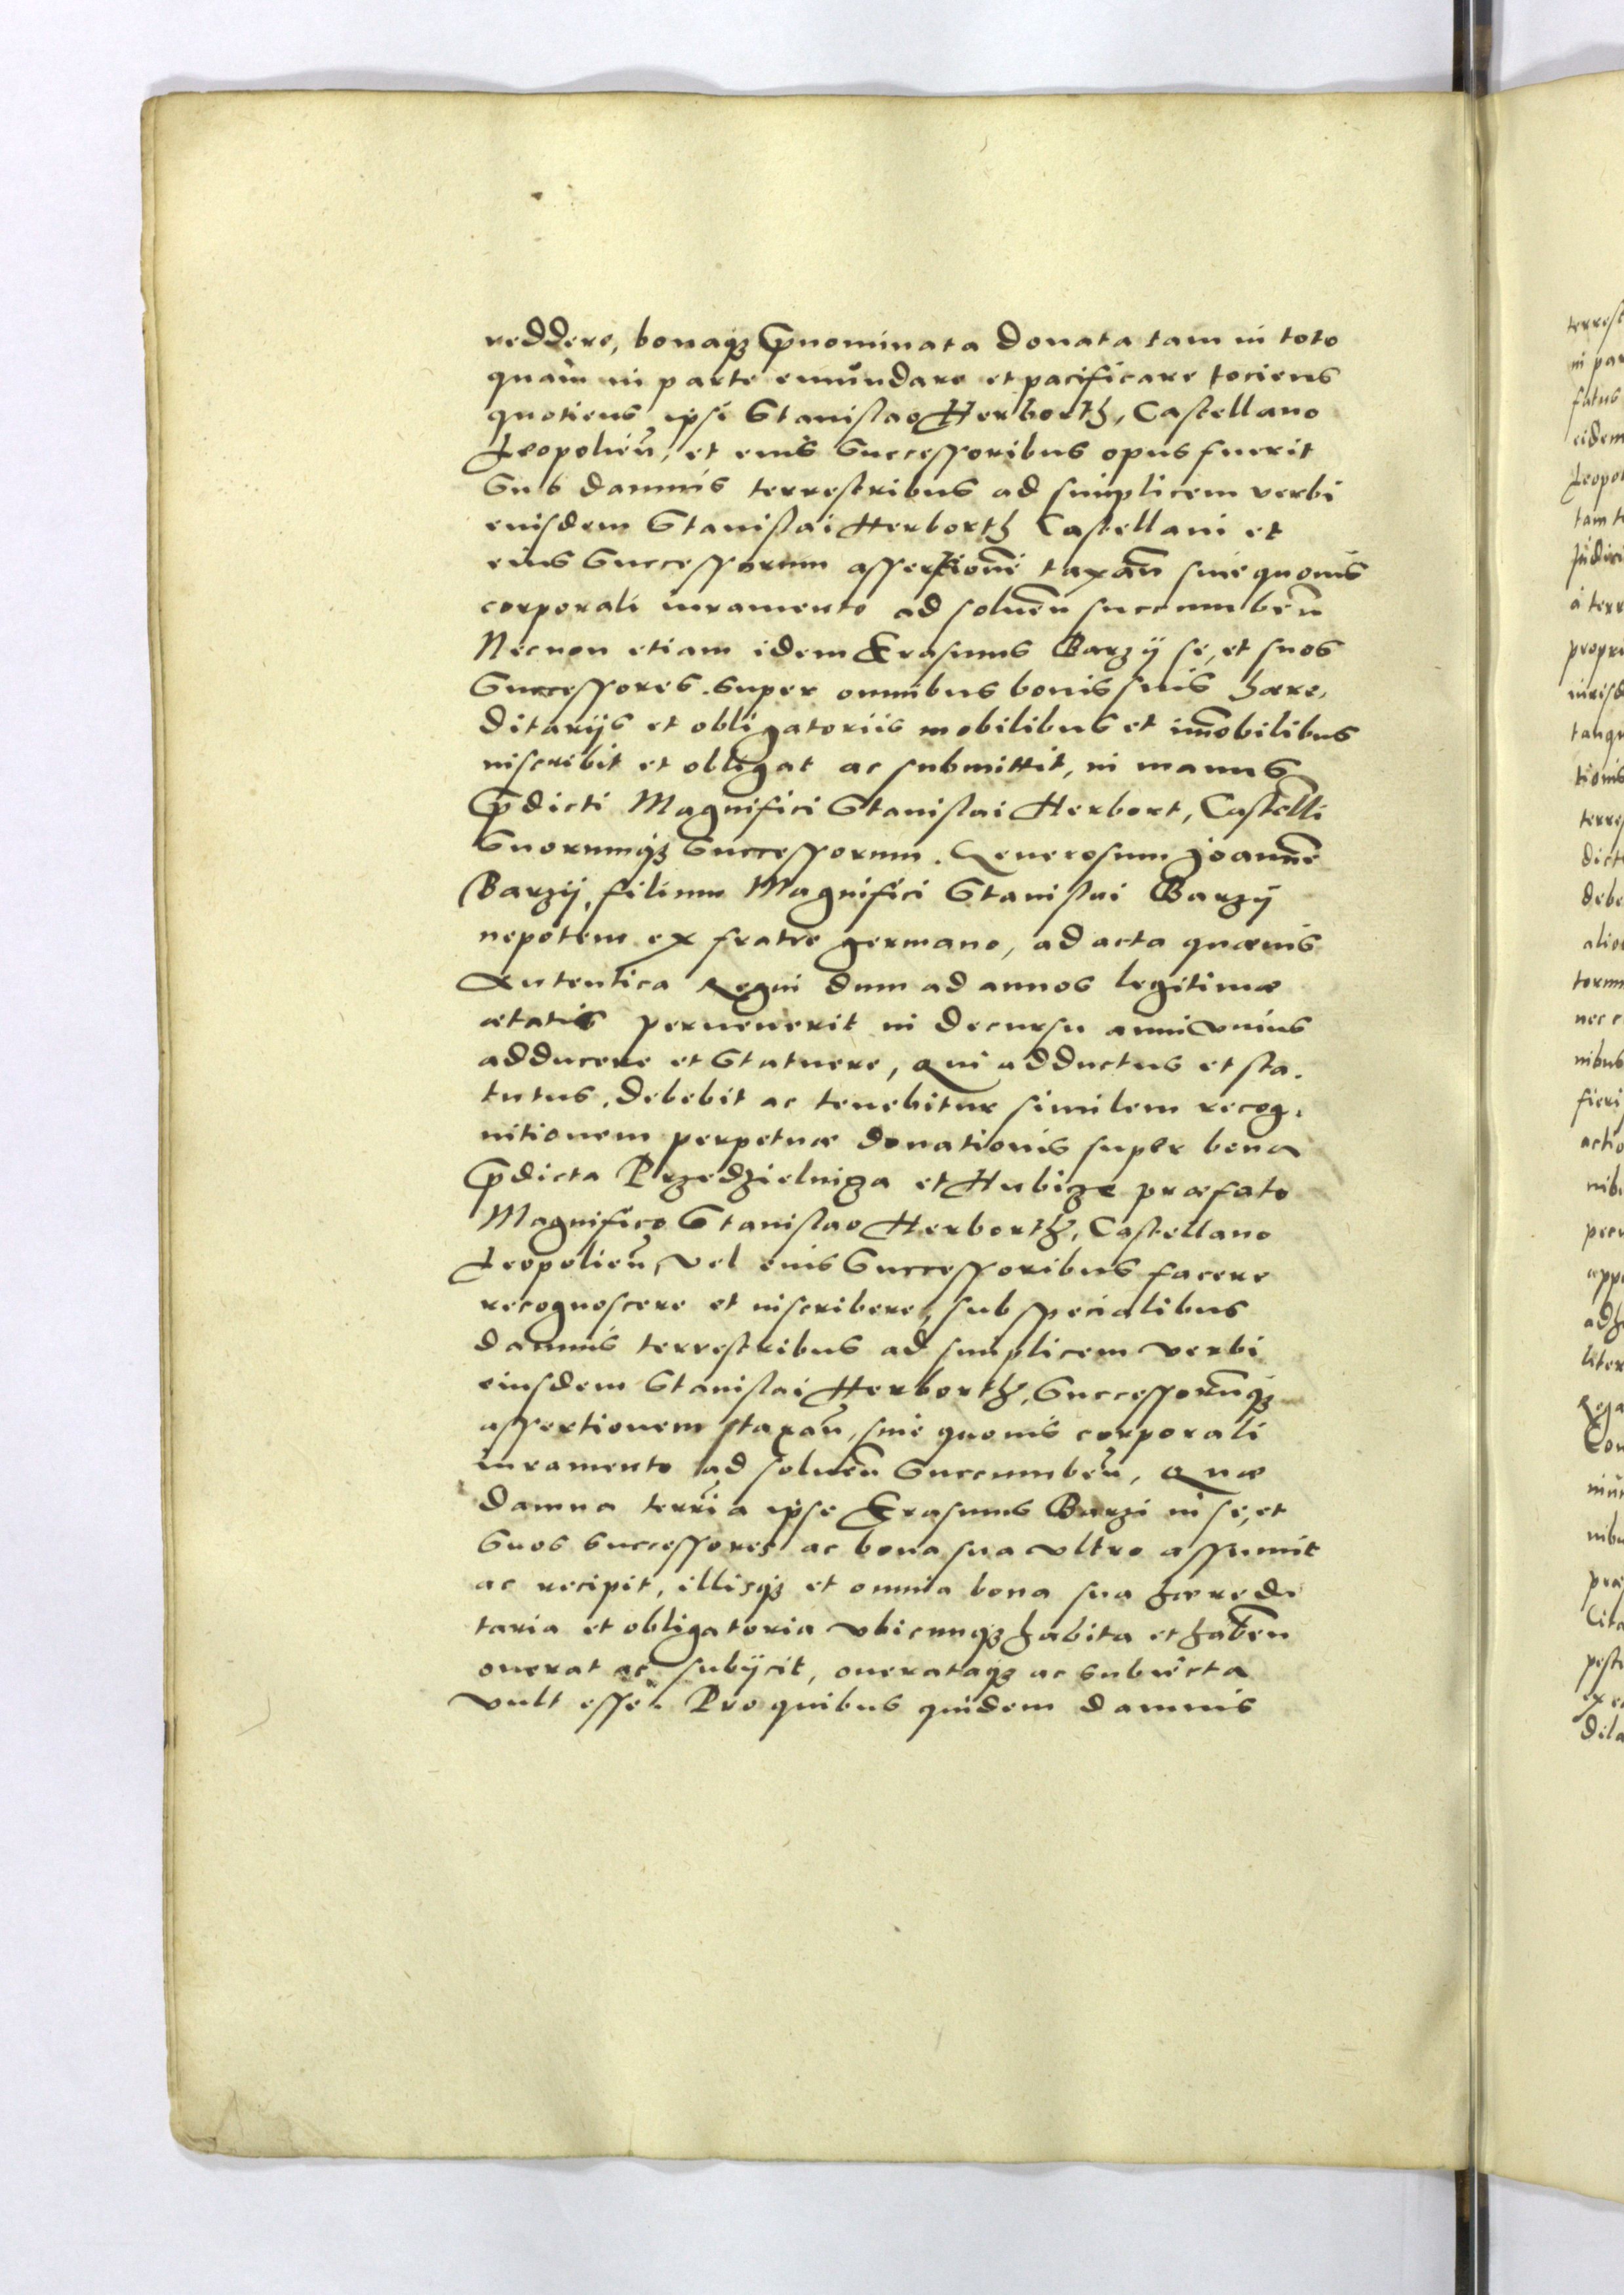 reddere, bonaqꝫ p̄nominata donata tam in toto
quam in parte emundare et pacificare tociens
quotiens ipsi Stanislao Herborth, Castellano
Leopolien̄, et eius Successoribus opus fuerit
Sub damnis terrestribus ad simplicem verbi
eiusdem Stanislai Herborth Castellani et
eius Successorum assertionē taxan̄ sine quouis
corporali iuramento ad soluen̄ succumben̄
Necnon etiam idem Erasmus Barzÿ se, et suos
Successores super omnibus bonis suis hære,
ditarijs et obligatoriis mobilibus et im̄obilibus
inscribit et obligat ac submittit, in manus
p̄dicti Magnifici Stanislai Herbort, Castelli
Suorumqꝫ Successorum. Generosum Joannē
Barzij, filium Magnifici Stanislai Barzÿ
nepotem ex fratre germano, ad acta quæuis
Autentica Regni dum ad annos legitimæ
ætatis peruenerit in decursu anni vnius
adducere et Statuere, Qui adductus et sta.
tutus, debebit ac tenebitur similem recog,
nitionem perpetuæ donationis super bona
p̄dicta Przedzielniza et Hubize præfato
Magnifico Stanislao Herborth, Castellano
Leopolien̄, vel eius Successoribus facere
recognoscere et inscribere, sub specialibus
damnis terrestribus ad simplicem verbi
eiusdem Stanislai Herborth, Successorūqꝫ
assertionem taxan̄, sine quouis corporali
iuramento ad soluen̄ Succumben̄, Quæ
damna terrīa ipse Erasmus Barzi in se, et
Suos successores ac bona sua vltro assumit
ac recipit, illisqꝫ et omnia bona sua hæredi
taria et obligatoria vbicunqꝫ habita et haben̄
onerat ac subijcit, onerataqꝫ ac subiecta
vult esse. Pro quibus quidem damnis